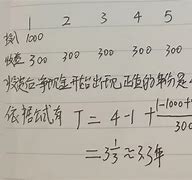 1 2 3 4 5
投入 1000
收益 300 300 300 300 300
收益后净现金开始出现正值的年份是
依据公式有 T = 4-1 + |-1000+
300
= 3 1/3 ≈ 3.3年